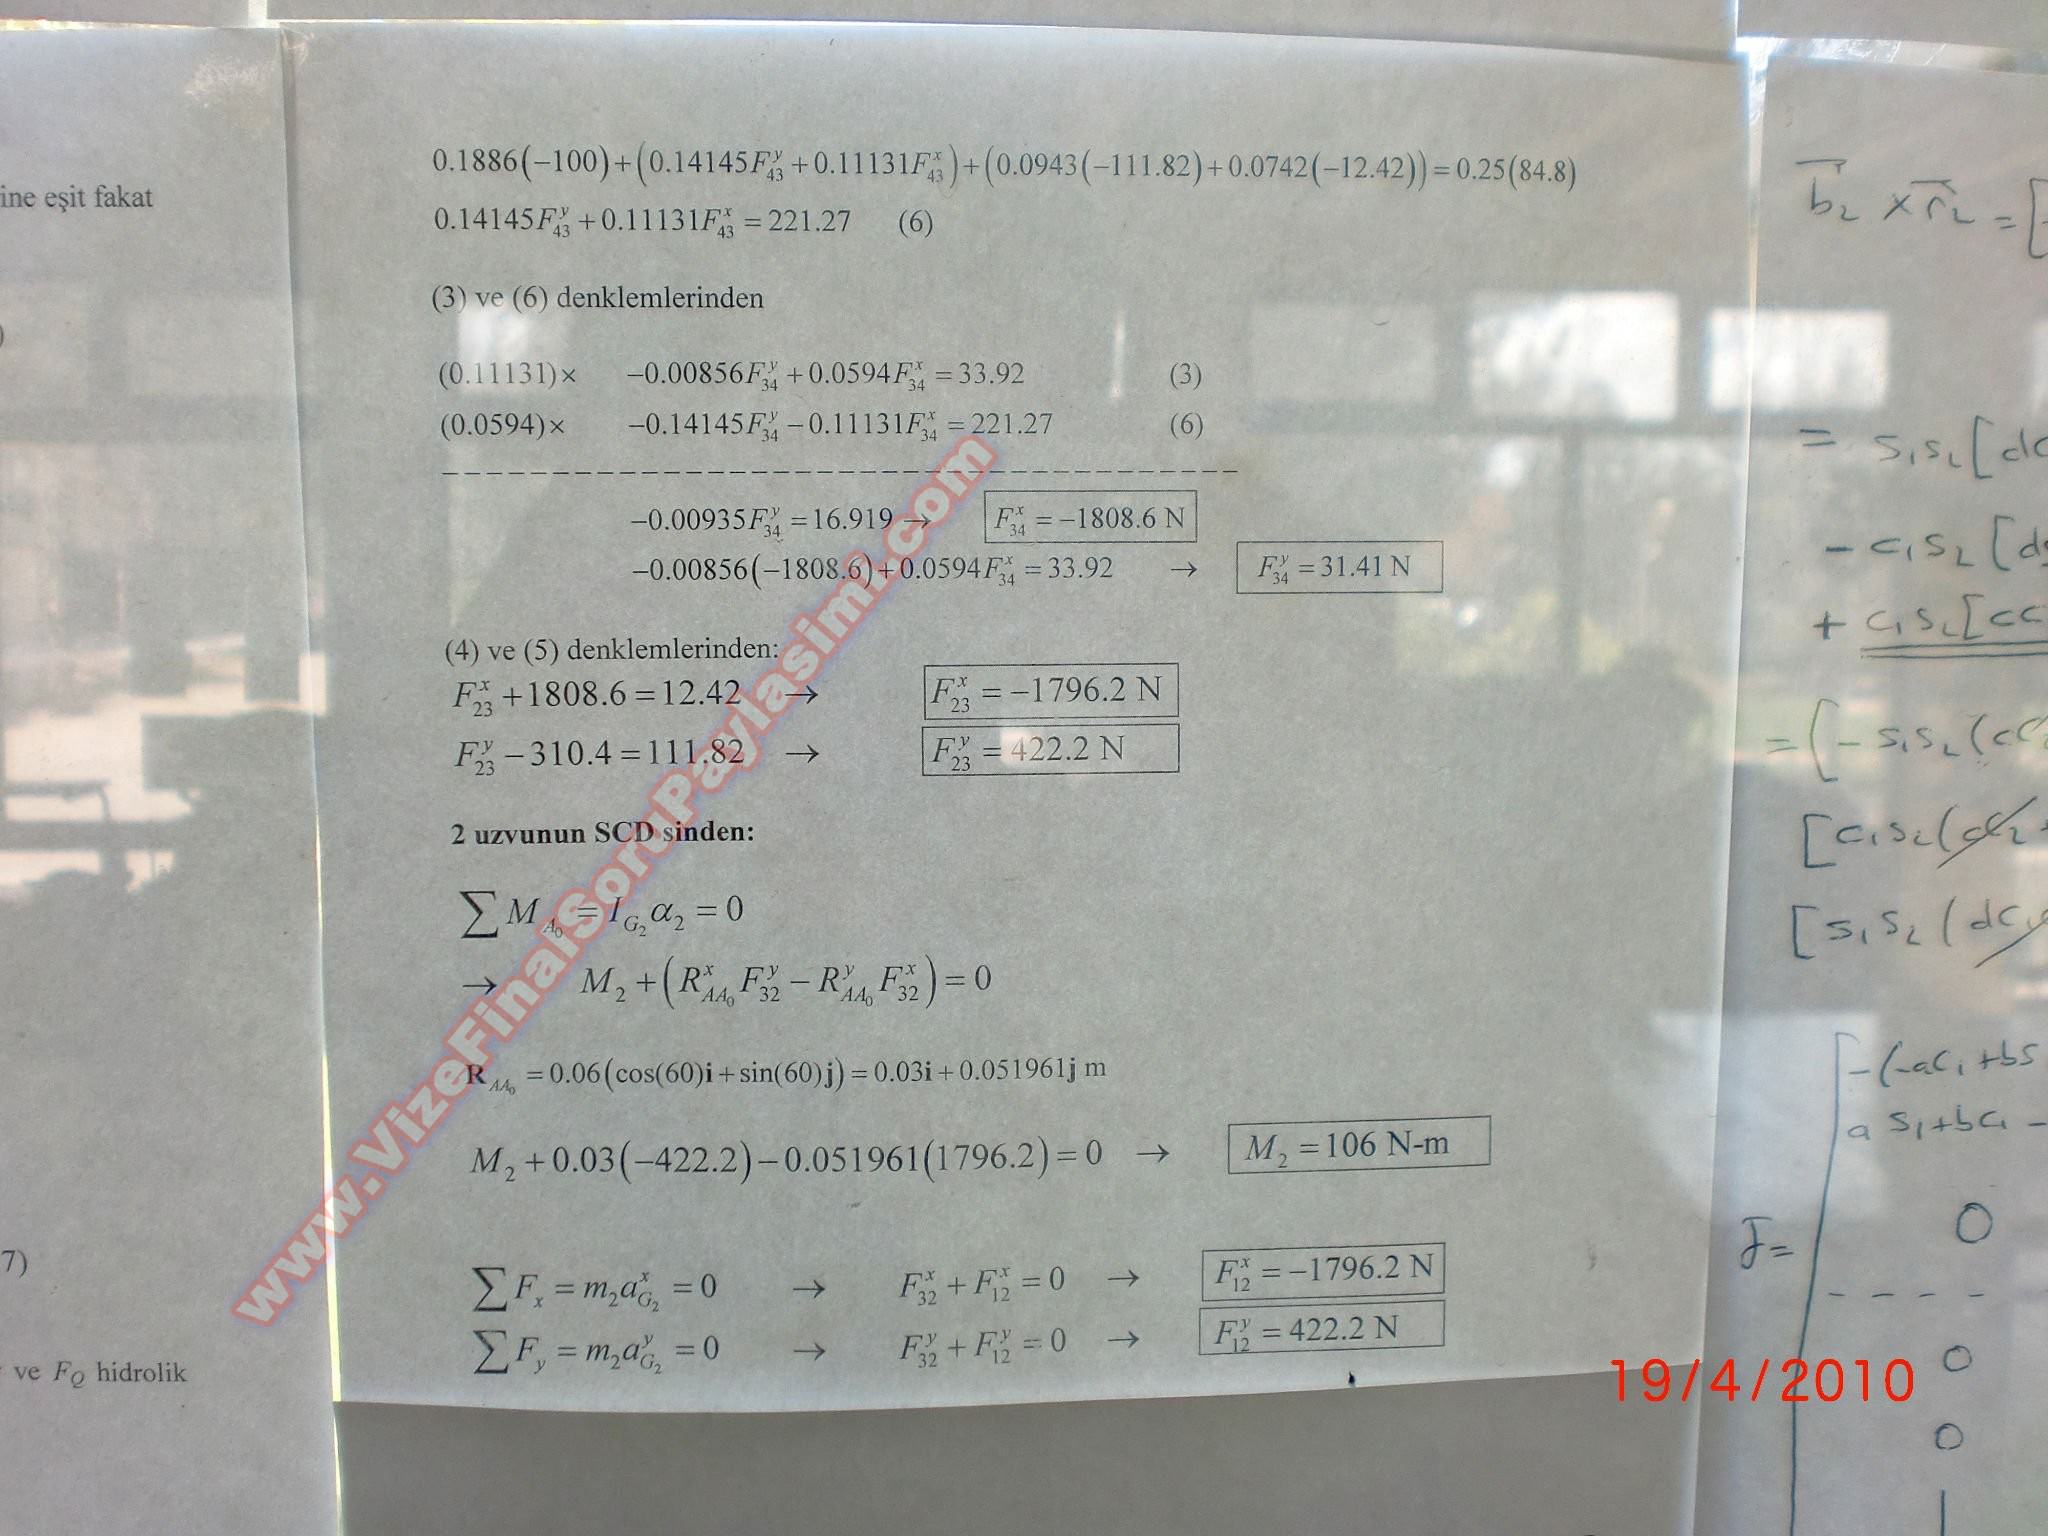 ine eşit fakat
)
7)
ve F_Q hidrolik
0.1886(−100)+(0.14145F_43^y+0.11131F_43^x)+(0.0943(−111.82)+0.0742(−12.42))=0.25(84.8)
0.14145F_43^y+0.11131F_43^x=221.27 (6)
(3) ve (6) denklemlerinden
(0.11131)× −0.00856F_34^y+0.0594F_34^x=33.92 (3)
(0.0594)× −0.14145F_34^y−0.11131F_34^x=221.27 (6)
−0.00935F_34^y=16.919→ F_34^x=−1808.6 N
−0.00856(−1808.6)+0.0594F_34^x=33.92 → F_34^y=31.41 N
(4) ve (5) denklemlerinden:
F_23^x+1808.6=12.42 → F_23^x=−1796.2 N
F_23^y−310.4=111.82 → F_23^y=422.2 N
2 uzvunun SCD sinden:
∑M_A₀=I_G₂α₂=0
→ M₂+(R_AA₀^x F_32^y−R_AA₀^y F_32^x)=0
R_AA₀=0.06(cos(60)i+sin(60)j)=0.03i+0.051961j m
M₂+0.03(−422.2)−0.051961(1796.2)=0 → M₂=106 N-m
∑F_x=m₂a_G₂^x=0 → F_32^x+F_12^x=0 → F_12^x=−1796.2 N
∑F_y=m₂a_G₂^y=0 → F_32^y+F_12^y=0 → F_12^y=422.2 N
www.VizeFinalSoruPaylasimi.com
b₂ × r₂ = [
= s₁s₂[dc
− c₁s₂[ds
+ c₁s₂[cc
=(−s₁s₂(cc₂
[c₁s₂(
[s₁s₂(dc₁
−(−ac₁+bs
as₁+bc₁−
J=
0
0
0
19/4/2010